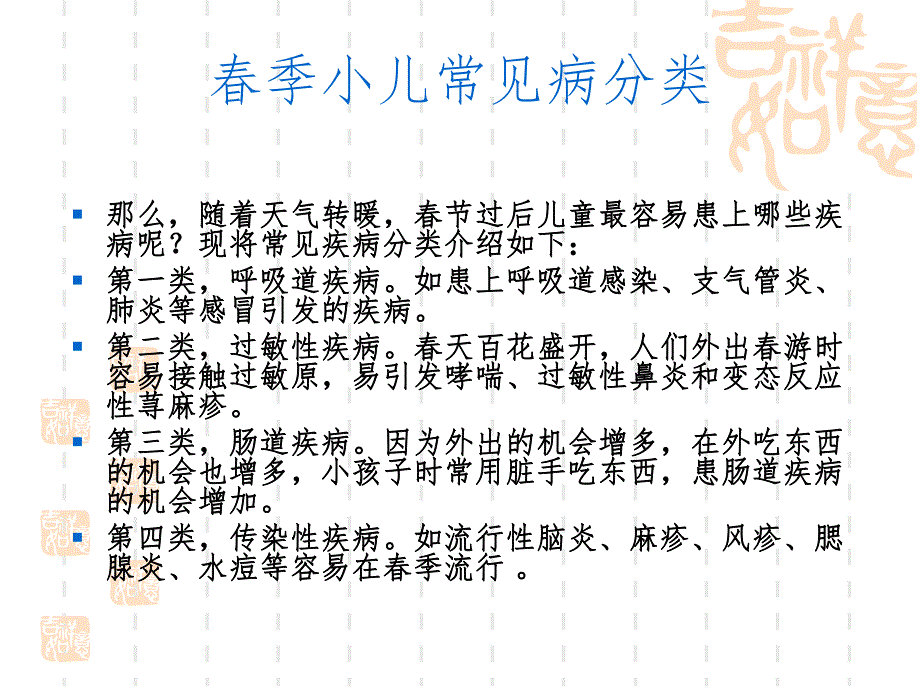 吉祥如意
春季小儿常见病分类
那么，随着天气转暖，春节过后儿童最容易患上哪些疾
病呢？现将常见疾病分类介绍如下：
第一类，呼吸道疾病。如患上呼吸道感染、支气管炎、
肺炎等感冒引发的疾病。
第二类，过敏性疾病。春天百花盛开，人们外出春游时
容易接触过敏原，易引发哮喘、过敏性鼻炎和变态反应
性荨麻疹。
第三类，肠道疾病。因为外出的机会增多，在外吃东西
的机会也增多，小孩子时常用脏手吃东西，患肠道疾病
的机会增加。
第四类，传染性疾病。如流行性脑炎、麻疹、风疹、腮
腺炎、水痘等容易在春季流行 。
吉祥如意
吉祥如意
吉祥如意